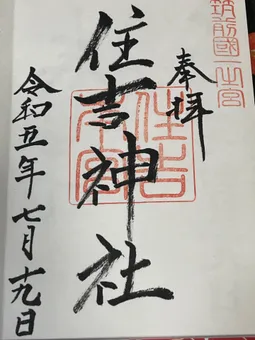 筑前國一之宮
奉拝
住吉神社
住吉本宮
令和五年七月十九日